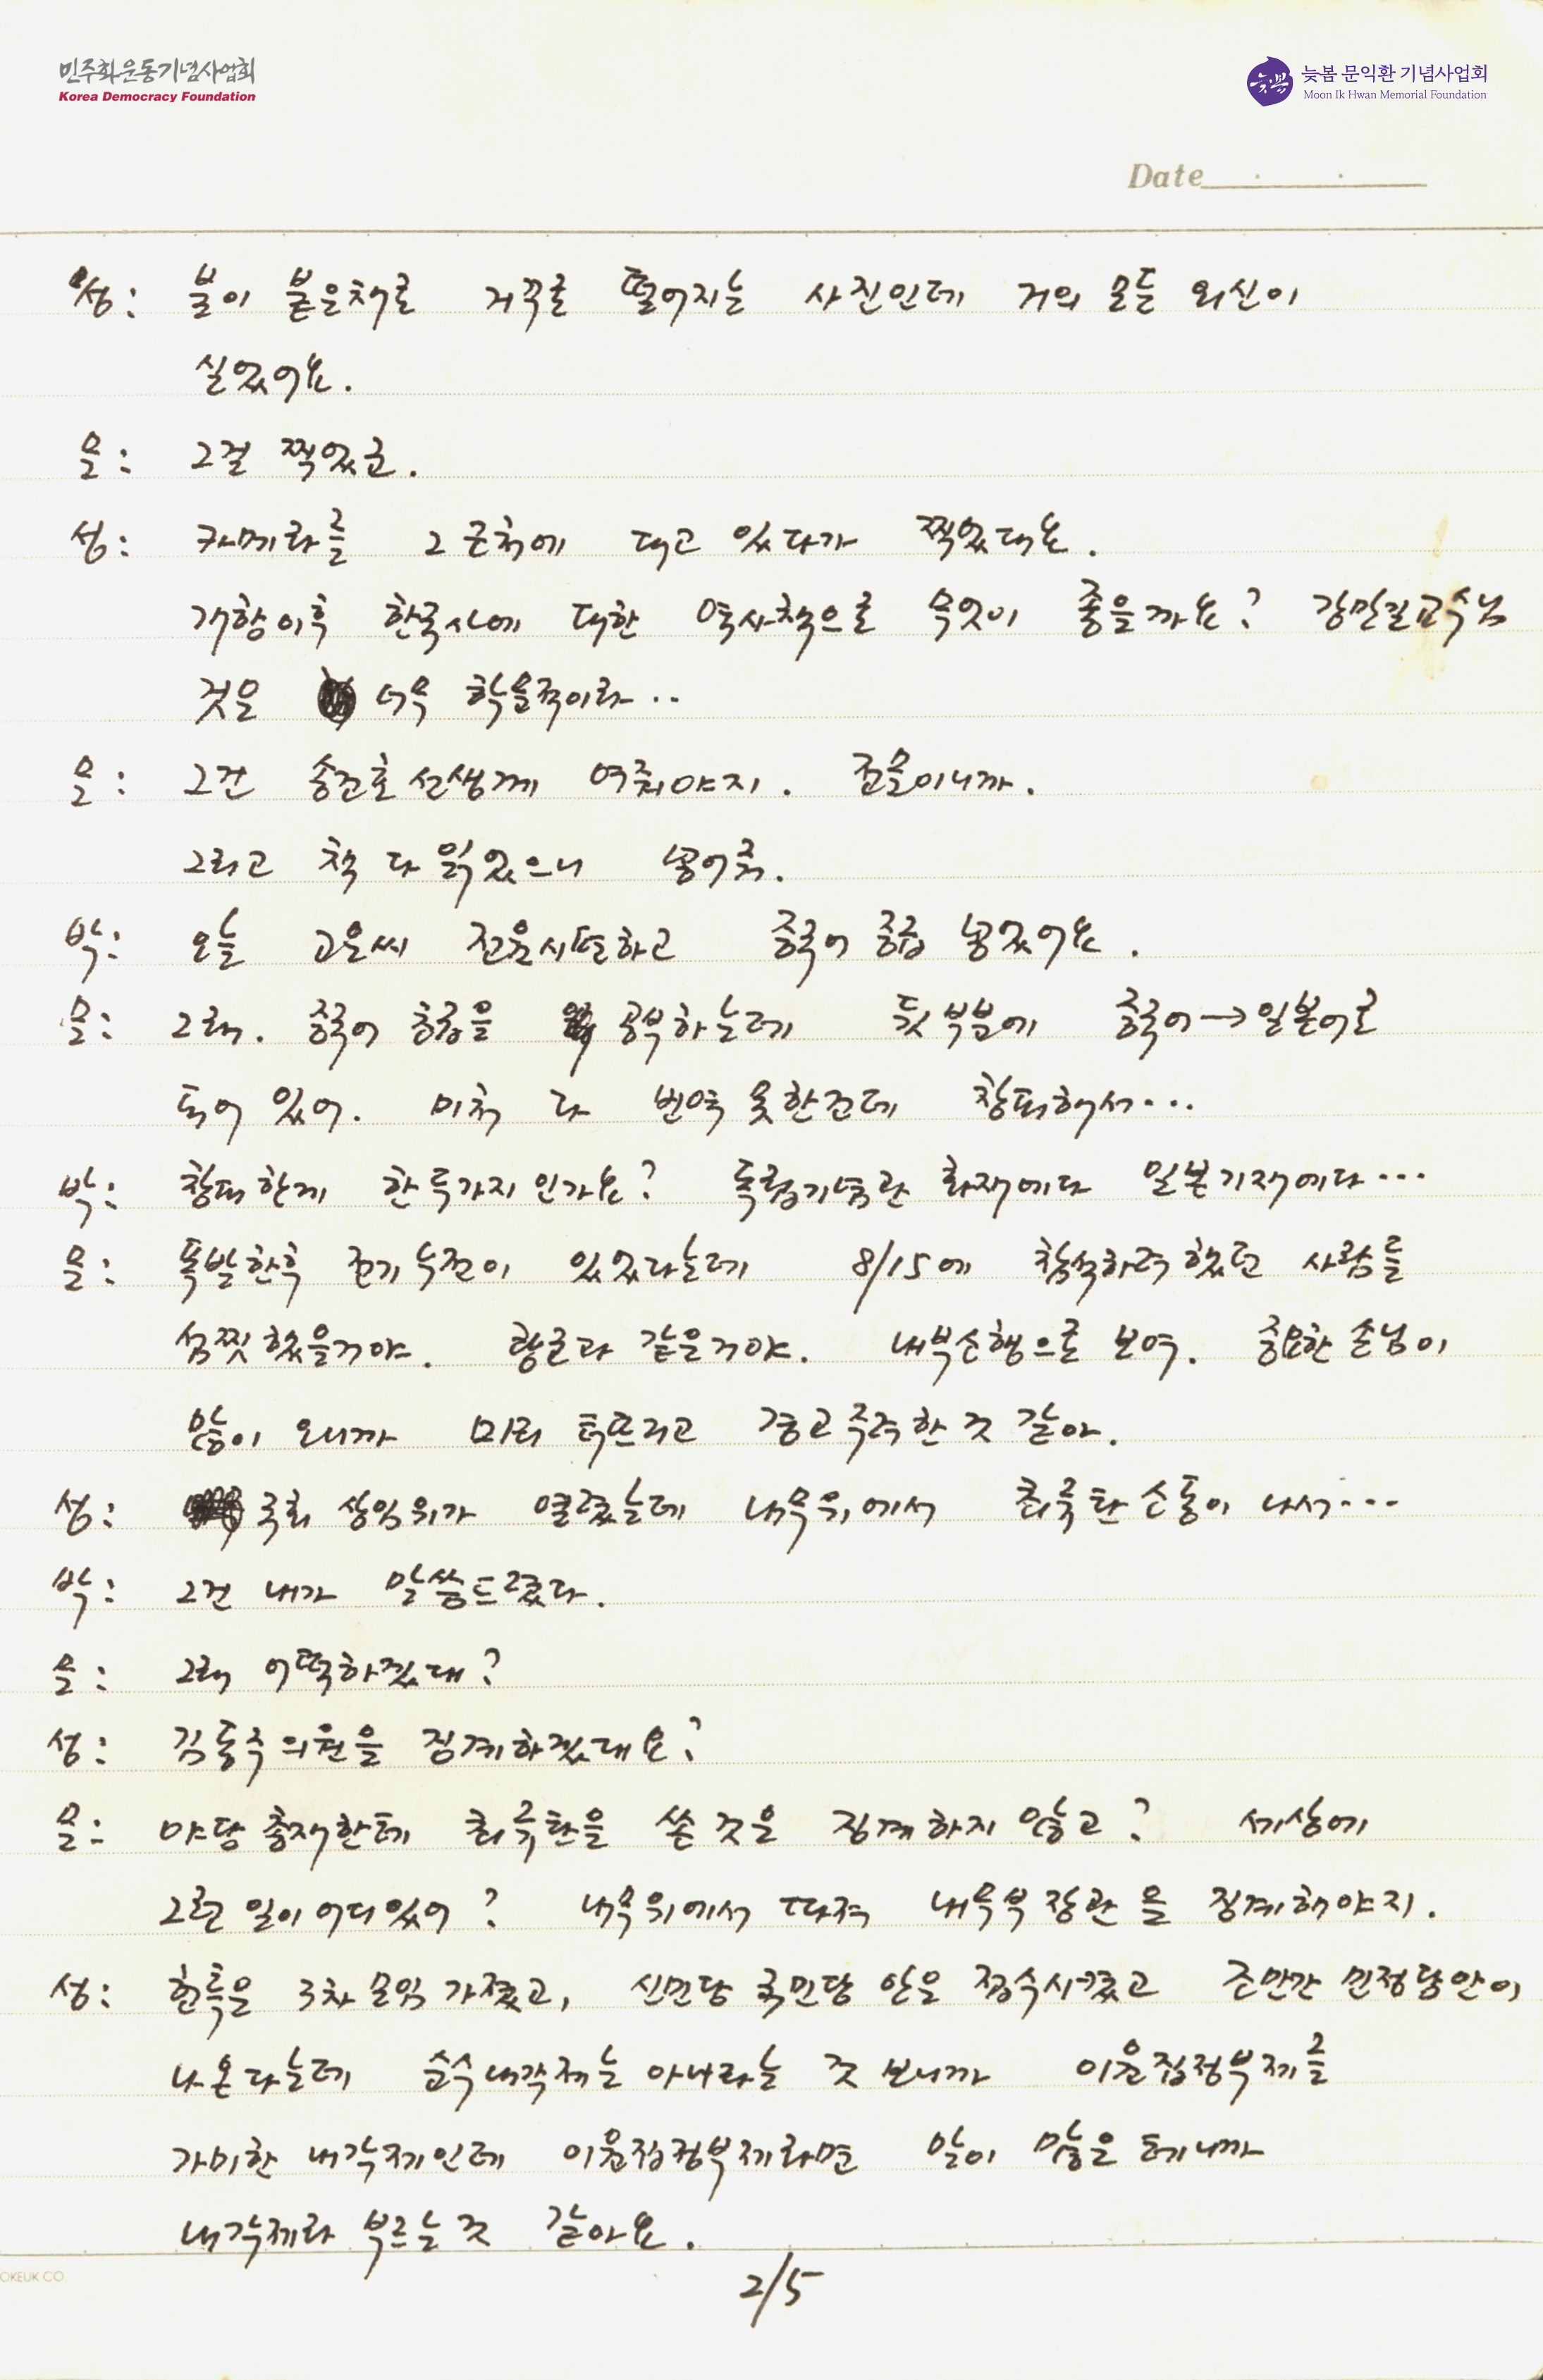 민주화운동기념사업회
Korea Democracy Foundation
늦봄 문익환 기념사업회
Moon Ik Hwan Memorial Foundation
Date
성: 불이 붙은채로 거꾸로 떨어지는 사진인데 거의 모든 외신이
실었어요.
문: 그걸 찍었군.
성: 카메라를 그 근처에 대고 있다가 찍었대요.
개항이후 한국사에 대한 역사책으로 무엇이 좋을까요? 강만길교수님
것은 너무 학술적이라..
문: 그건 송건호선생께 여쭤야지. 전문이니까.
그리고 책 다 읽었으니 넣어줘.
박: 오늘 고은씨 전원시편하고 중국어 중급 넣었어요.
문: 그래. 중국어 중급을 공부하는데 뒷부분에 중국어→일본어로
되어 있어. 미처 다 번역 못한건데 창피해서...
박: 창피한게 한두가지인가요? 독립기념관 화재에다 일본기재에다...
문: 폭발한후 전기누전이 있었다는데 8/15에 참석하려했던 사람들
섬찟했을거야. 황큰과 같을거야. 내부소행으로 보여. 중요한 손님이
많이 오니까 미리 터뜨리고 경고주려한 것 같아.
성: 국회 상임위가 열렸는데 내무위에서 최루탄 소동이 나서...
박: 그건 내가 말씀드렸다.
문: 그래 어떡하겠대?
성: 김동주의원을 징계하겠대요?
문: 야당총재한테 최루탄을 쏜 것은 징계하지 않고? 세상에
그런 일이 어디있어? 내무위에서 따져 내무부장관을 징계해야지.
성: 헌특은 3차 모임 가졌고, 신민당 국민당 안은 접수시켰고 조만간 민정당안이
나온다는데 순수내각제는 아니라는 것 보니까 이원집정부제를
가미한 내각제인데 이원집정부제라면 말이 많을 테니까
내각제라 부르는 것 같아요.
OKEUK CO.
2/5